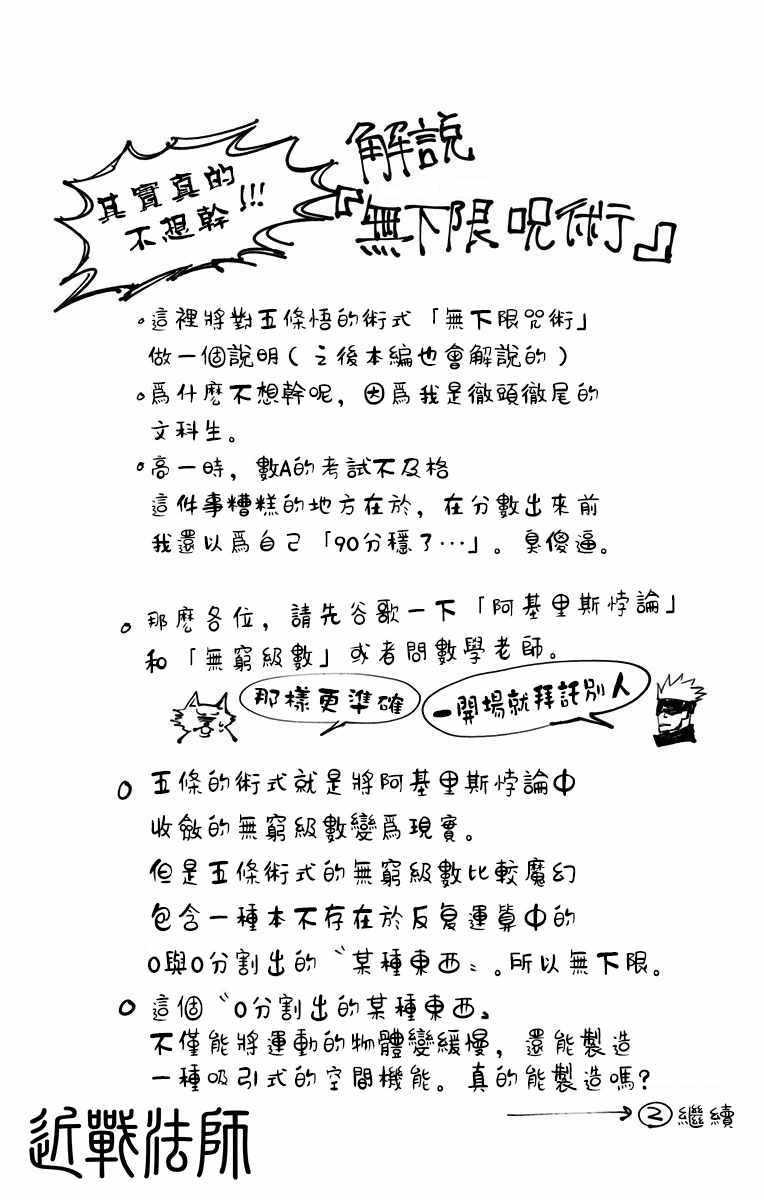 解說
『無下限呪術』
其實真的
不想幹!!!
。這裡將對五條悟的術式「無下限咒術」
做一個說明(之後本編也會解說的)
。爲什麽不想幹呢，因爲我是徹頭徹尾的
文科生。
。高一時，數A的考試不及格
這件事糟糕的地方在於，在分數出來前
我還以爲自己「90分穩了…」。臭傻逼。
。那麽各位，請先谷歌一下「阿基里斯悖論」
和「無窮級數」或者問數學老師。
那樣更準確
一開場就拜託別人
。五條的術式就是將阿基里斯悖論中
收斂的無窮級數變爲現實。
但是五條術式的無窮級數比較魔幻
包含一種本不存在於反复運算中的
0與0分割出的〝某種東西〟。所以無下限。
。這個〝0分割出的某種東西〟
不僅能將運動的物體變緩慢，還能製造
一種吸引式的空間機能。真的能製造嗎?
→②繼續
近戰法師